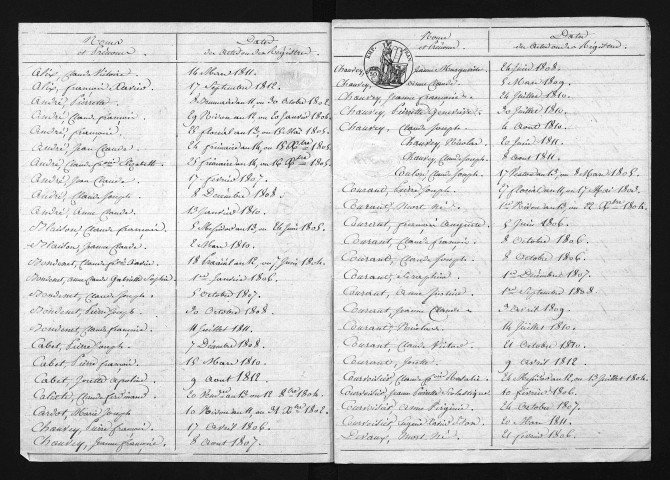 Noms et Prénoms
Dates des actes ou des Registres
Alix, Claude Victoire 14 Mars 1811.
Alix, François Xavier 17 Septembre 1812.
André, Pierrette 8 Brumaire an 11 ou 30 Octobre 1802.
André, Claude François 29 Nivose an 12 ou 20 Janvier 1804
André, François 22 floréal an 13 ou 12 Mai 1805.
André, Jean Claude 24 frimaire an 14 ou 15 Xbre 1805
André, Claude fse Elizabeth 25 frimaire an 14 ou 16 Xbre 1805
André, Jean Claude 17 fevrier 1807.
André, Claude Joseph 8 Decembre 1808.
André, Anne Claude 13 Janvier 1810.
Claude François 5 Messidor an 13 ou 24 Juin 1805.
Jeanne Claude 2 Mars 1810.
Claude fois Xavier 18 Prairial an 12 ou 7 Juin 1804.
Jeanne Claude Gabrielle Sophie 1er Janvier 1806.
Claude Joseph 5 Octobre 1807.
Pierre Joseph 30 Octobre 1808.
Jeanne françoise 11 Juillet 1811.
Cabet, Pierre Joseph 7 Décembre 1808.
Cabet, Pierre françois 15 Mars 1810.
Cabet, Josette Apoline 9 Aout 1812.
Claude Ferdinand 20 an 13 ou 12 8bre 1804
Cardot, Marie Joseph 10 Nivose an 11 ou 31 Xbre 1802.
Chauvey, Pierre François 17 Avril 1806.
Chauvey, Jeanne Françoise 8 Aout 1807.
Noms et Prénoms
Dates des actes ou des Registres
Chauvey, Jeanne Marguerite 24 Juin 1808.
Chauvey, Anne Claude 5 Mars 1809.
Chauvey, Jeanne françoise 21 Juillet 1810.
Chauvey, Pierrette Genevieve 30 Juillet 1810.
Chauvey, Claude Joseph 4 Aout 1810.
Chauvey, Nicolas 20 Juin 1811.
Chauvey, Claude Joseph 8 Aout 1811.
Coulon, Claude Joseph 17 Ventose an 13 ou 8 Mars 1805.
Courant, Pierre Joseph 27 floréal an 11 ou 17 Mai 1803.
Courant, Mort Né 1er Nivose an 13 ou 22 Xbre 1804.
Courant, François Auguste 5 Juin 1806.
Courant, Claude François 8 Octobre 1806.
Courant, Claude Joseph 8 Octobre 1806.
Courant, Seraphin 1er Décembre 1807.
Courant, Anne Justine 1er Septembre 1808.
Courant, Jeanne Claude 3 Avril 1809.
Courant, Nicolas 14 Juillet 1810.
Courant, Claude Victor 21 Octobre 1810.
Courant, Josette 9 Avril 1812.
Courvoisier, Claude fse Rosalie 24 Messidor an 12 ou 13 Juillet 1804.
Courvoisier, Jeanne Pierrette Scolastique 10 fevrier 1806.
Courvoisier, Anne Virginie 24 Octobre 1807.
Courvoisier, 20 Mars 1811.
Devaux, Mort Né 21 fevrier 1806.